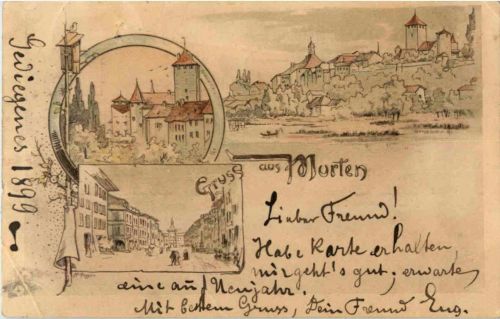 Gediegenes 1899
Gruss aus Murten
Lieber Freund!
Habe Karte erhalten,
mir geht's gut, erwarte
eine auf Neujahr.
Mit bestem Gruss, Dein Freund Eug.